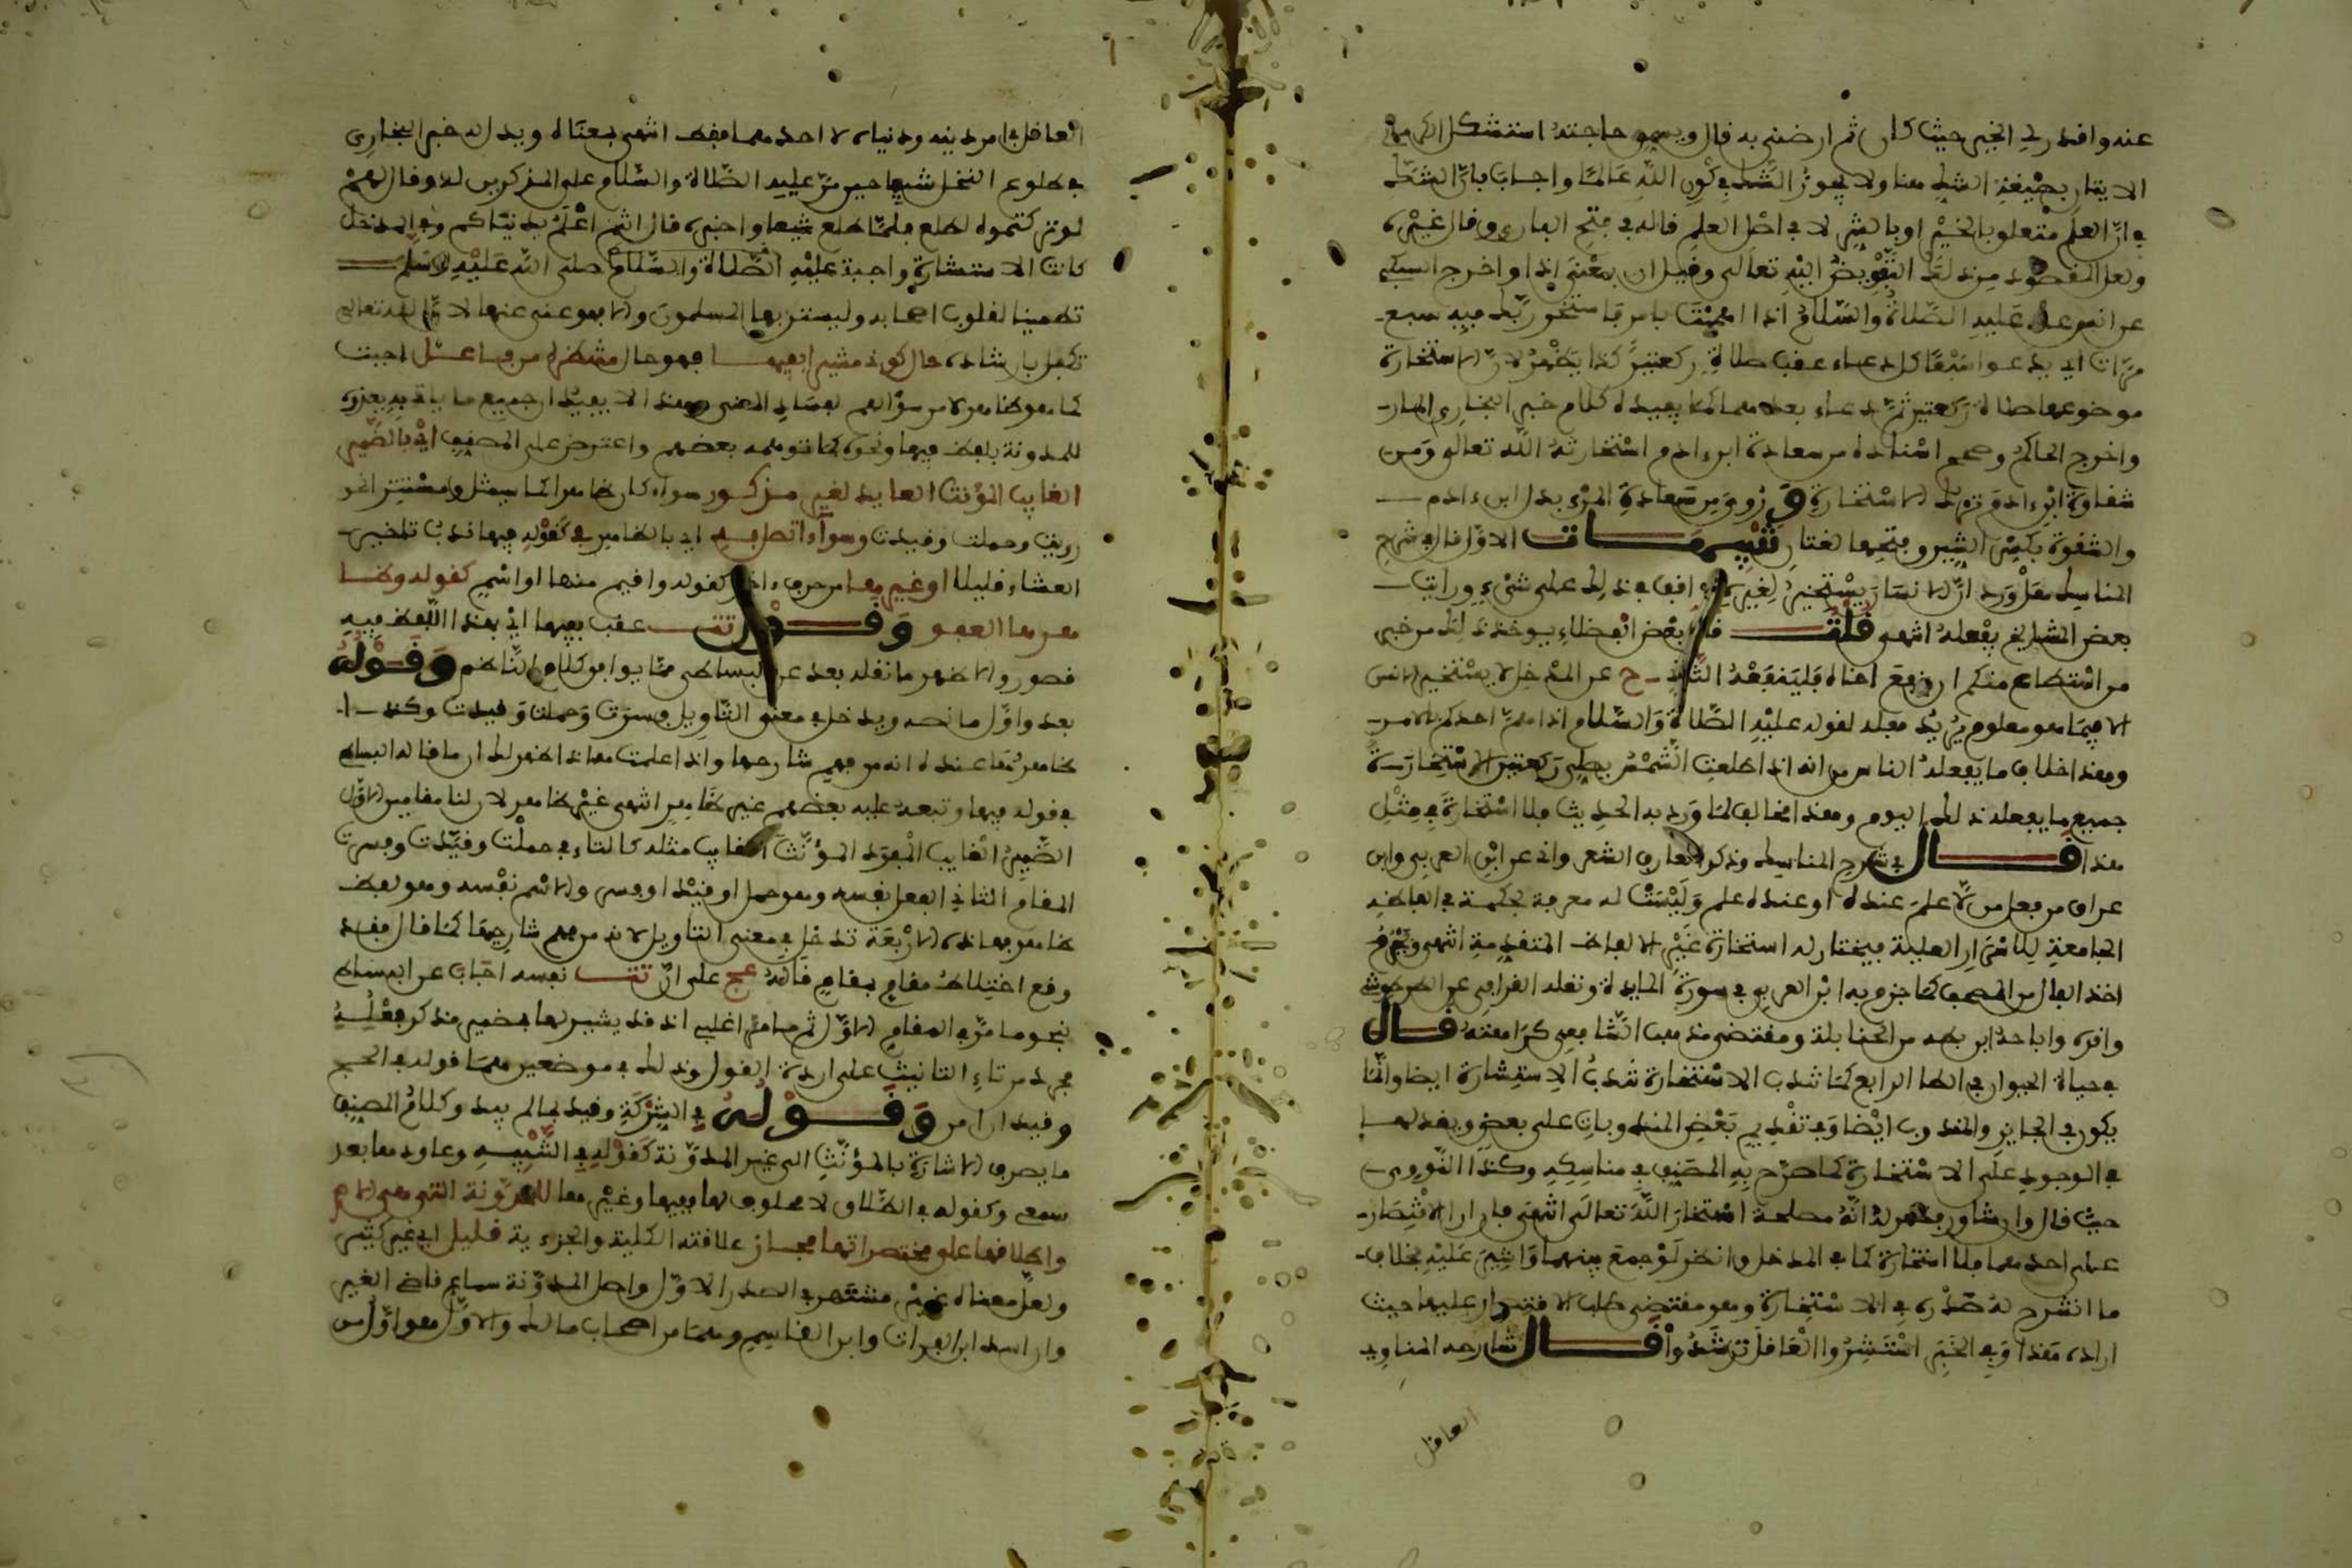 عنه واقدر لي الخير حيث كان ثم ارضني به قال ويسمي حاجته استشكل الكرماني
الاتيان بصيغة الشك هنا ولا يجوز الشك في كون الله عالما واجاب بان الشك
في ان العلم متعلق بالخير او بالشر لا في اصل العلم قاله في فتح الباري وقال غيره
ولعل المقصود من ذلك التفويض اليه تعالى وقيل ان بمعنى اذا واخرج السني
عن انس عنه عليه الصلاة والسلام اذا هممت بامر فاستخر ربك فيه سبع
مرات اي يدعوا سبعا كل دعاء عقب صلاة ركعتين كذا يظهر لان الاستخارة
موضوعها صلاة ركعتين ثم دعاء بعدهما كما يفيده كلام خبر البخاري المار
واخرج الحاكم وصحح اسناده من سعادة ابن ءادم استخارته الله تعالى ومن
شقاوة ابن ءادم تركه الاستخارة وروي من سعادة المرء بدل ابن ءادم
والشقوة بكسر الشين وفتحها لغتان تنبيهات الاول قال في شرح
المناسك هل ورد ان الانسان يستخير لغيره اقف في ذلك على شيء ورايت
بعض المشايخ يفعله انتهى قلت قال بعض الفضلاء يوخذ ذلك من خبر
من استطاع منكم ان ينفع اخاه فلينفعه الثاني ح عن المدخل لا يستخير الانس
الا فيما هو معلوم يريد فعله لقوله عليه الصلاة والسلام اذا هم احدكم بالامر
وهذا خلاف ما يفعله الناس من انه اذا طلعت الشمس يصلي ركعتين الاستخارة
جميع ما يفعله ذلك اليوم وهذا مخالف لما ورد به الحديث فلا استخارة في مثل
هذا قال في شرح المناسك وذكر العارف الشعراني عن ابن العربي وابن
عراق من فعل من لا علم عنده او عنده علم وليست له معرفة بحكمة في العاطفة
الجامعة للاسرار العلية فيختار له استخارة غير الالفاظ المتقدمة انتهى ويحرم
اخذ الفال من المصحف كما جزم به ابن العربي في سورة المايدة ونقله القرافي عن الطرطوشي
واقره واباحه ابن بطه من الحنابلة ومقتضى مذهب الشافعي كراهته قال
في حياة الحيوان في الطا الرابع كما تندب الاستخارة تندب الاستشارة ايضا وانما
يكون في الجايز والمندوب ايضا وفي تقديم بعض المندوبات على بعض ويقدمها
في الوجود على الاستخارة كما صرح به المصنف في مناسكه وكذا النووي
حيث قال وان شاور وظهر له انه مصلحة استخار الله تعالى انتهى فان اراد الاقتصار
على احدهما فلا استخارة كما في المدخل وانظر لو جمع بينهما واشير عليه بخلاف
ما انشرح له صدره في الاستخارة وهو مقتضى طلب الاقتصار عليها حيث
اراده هذا وفي الخبر استشيروا العاقل ترشدوا قال شارحه المناوي
العاقل
العاقل في امر دينه ودنياه لا احدهما فقط انتهى بمعناه ويدل له خبر البخاري
في طلوع النخل شيصا حين مر عليه الصلاة والسلام على المذكرين له وقال لهم
لو تركتموه لطلع فلما طلع شيصا واخبره قال انتم اعلم بدنياكم وفي المدخل
كانت الاستشارة واجبة عليه الصلاة والسلام صلى الله عليه وسلم
تطمينا لقلوب اصحابه وليستن بها المسلمون والا فهو غني عنها لان الله تعالى
تكفل بارشاده حال كونه مشيرا بفيها فهو حال منتظرة من فاعل اجبت
كما هو ظاهر لا من سؤالهم لفساد المعنى وهذا لا يفيد ان جميع ما ياتي به يعزوه
للمدونة بلفظ فيها ونحوه كما توهمه بعضهم واعترض على المصنف اي بالضمير
الغايب المؤنث العايد لغير مذكور سواء كان ظاهرا كما سيمثل او مستترا نحو
رويت وحملت وقيدت وسواء اتصل به اي بالظاهر في كقوله فيها ندب تاخير
العشاء قليلا او غيرها من حرف ءاخر كقوله واقيم منها او اسم كقوله وظا
هرها العفو وقول تت عقب بفيها اي بهذا اللفظ فيه
قصور والاظهر ما نقله بعد عن البساطي مما يوافق كلام الناظم وقوله
بعد واول ما نصه ويدخل في معنى التاويل فسرت وحملت وقيدت وكذا
ظاهرها عنده انه من فهم شارحها واذا علمت هذا ظهر لك ان ما قاله البساطي
في قوله فيها وتبعه عليه بعضهم غير ظاهر انتهى غير ظاهر لان لنا مقامين الاول
الضمير الغايب المفرد المؤنث الغايب مثله كالتاء في حملت وقيدت وفسرت
المقام الثاني الفعل نفسه وهو حمل او قيد او فسر والاسم نفسه وهو لفظ
ظاهر فهذه الاربعة تدخل في معنى التاويل لانه من فهم شارحها كما قال فقد
وقع اختلاط مقام بمقام قاله عج على ان تت نفسه اجاب عن البساطي
بنحو ما مر في المقام الاول ثم ما مر اغلبي اذ قد يشير لها بضمير مذكر وفعله
مجرد من تاء التانيث على ارادة القول وذلك في موضعين هما قوله في الحج
وقيد ان امر وقوله في الشركة وقيد بما لم يبد وكلام المصنف
ما يصرف الاشارة بالمؤنث الى غير المدونة كقوله في التنبيه وعاود هما بعد
سمع وكقوله في الطلاق لا محلوف لها بفيها وغيرها للمدونة التي هي الام
واطلاقها على مختصراتها مجاز علاقته الكلية والجزءية قليل اي غير كثير
ولعل معناه غير مشتهر في الصدر الاول واصل المدونة سماع قاضي القير
وان اسد ابن الفرات وابن القاسم وهما من اصحاب مالك والاول هو اول من